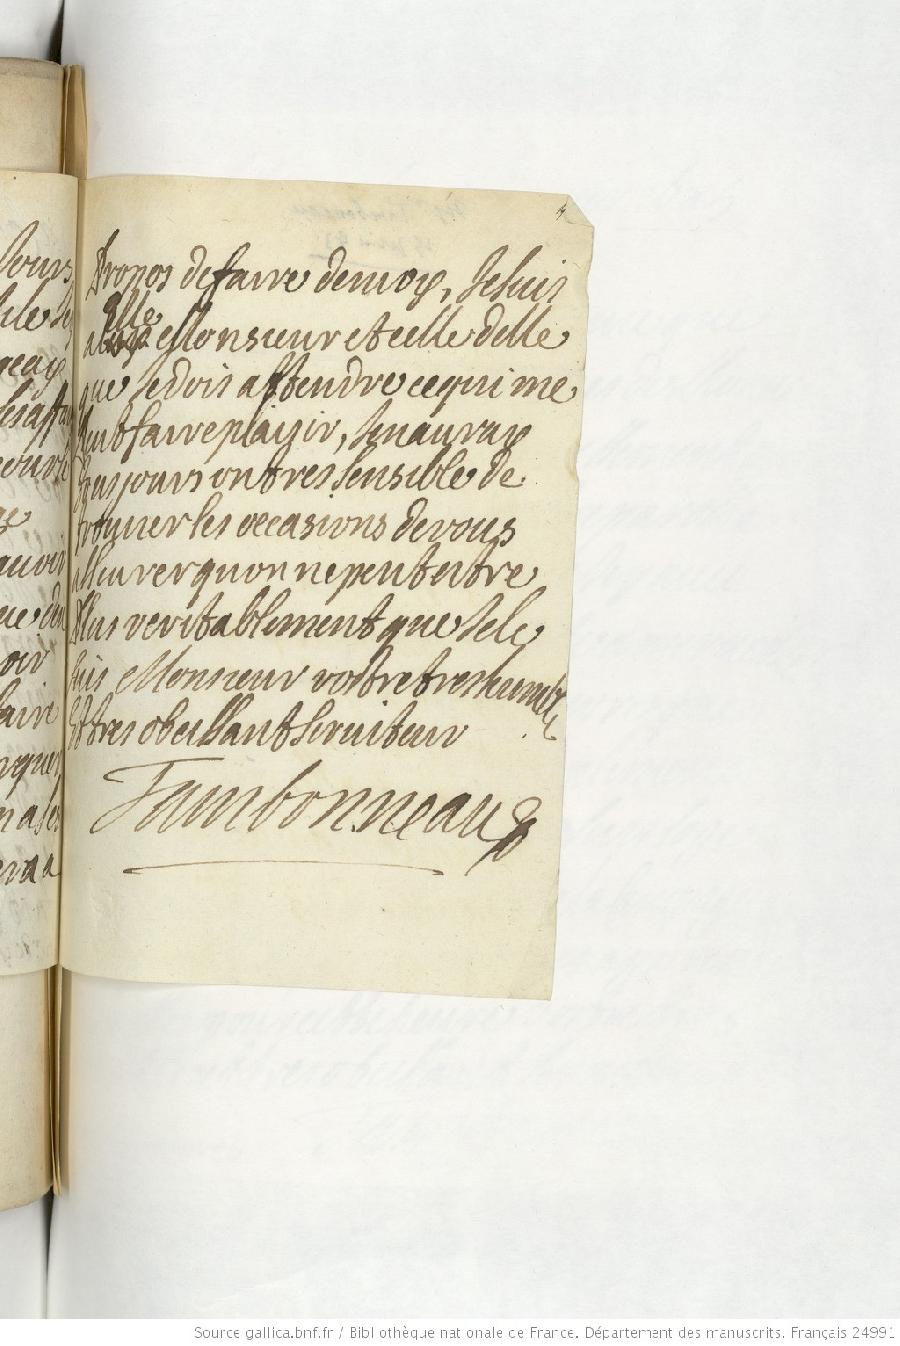 propos de faire de moy, Je suis
a Elle Monsieur et celle delle
que Je dois attendre ce qui me
peut faire plaisir, Jen auray
tousjours un tres sensible de
trouver les occasions de vous
assurer quon ne peut estre
plus veritablement que Je le
suis Monsieur vostre tres humble
Et tres obeissant serviteur
Tambonneau
Source gallica.bnf.fr / Bibliothèque nationale de France. Département des manuscrits. Français 24991